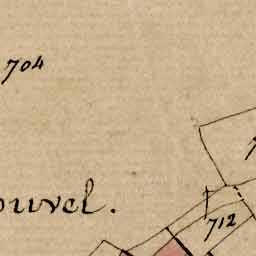 704
ouvel.
712